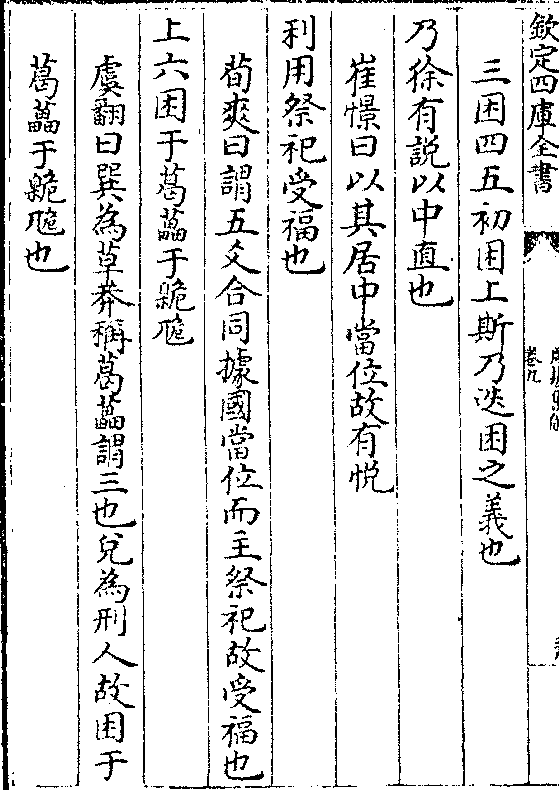 欽定四庫全書
卷九
三困四五初困上斯乃迭困之義也
乃徐有說以中直也
崔憬曰以其居中當位故有悅
利用祭祀受福也
荀爽曰謂五爻合同據國當位而主祭祀故受福也
上六困于葛藟于臲卼
虞翻曰巽為草莽稱葛藟謂三也兌為刑人故困于
葛藟于臲卼也